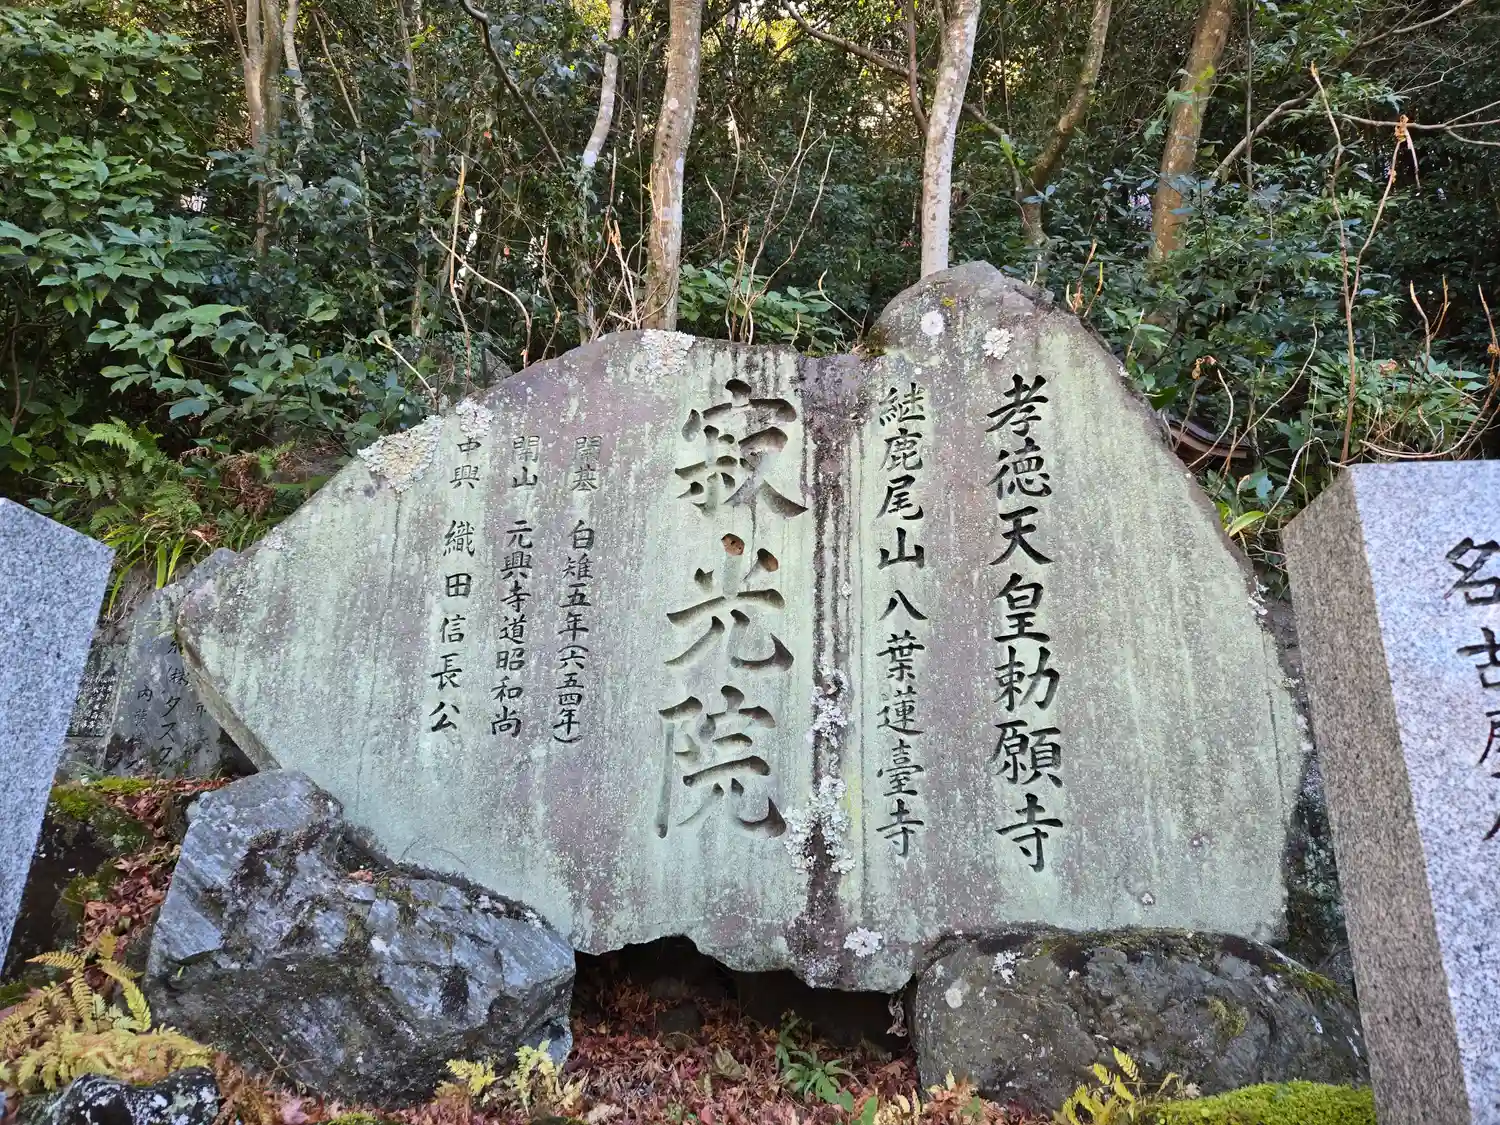 孝徳天皇勅願寺
継鹿尾山 八葉蓮臺寺
寂光院
開基 白雉五年(六五四年)
開山 元興寺道昭和尚
中興 織田信長公
名古屋
タスク